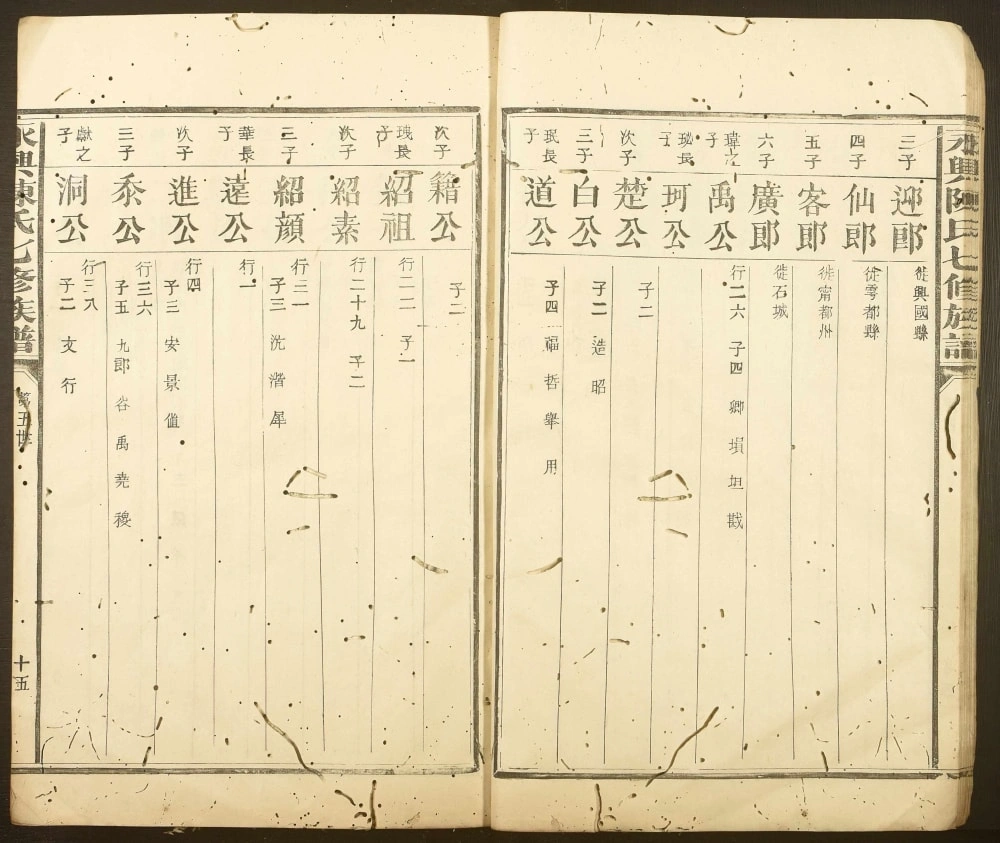 永興陳氏七修族譜
三子
迎郎
徙興國縣
四子
仙郎
徙雩都縣
五子
客郎
徙甯都州
六子
廣郎
徙石城
瑋之子
禹公
行二六 子四 卿 塤 坦 戡
長子
珂公
次子
楚公
子二
三子
白公
子二 造 昭
珉長子
道公
子四 福 哲 舉 用
次子
籍公
子二
長子
紹祖
行二二 子一
次子
紹素
行二十九 子二
三子
紹顏
行三一
子三 沈 潛 犀
華長子
達公
行一
次子
進公
行四
子三 安 景 值
三子
泰公
行三六
子五 九郎 谷 禹 堯 穆
獻之子
洞公
行三八
子二 支 行
永興陳氏七修族譜
第五世
十五